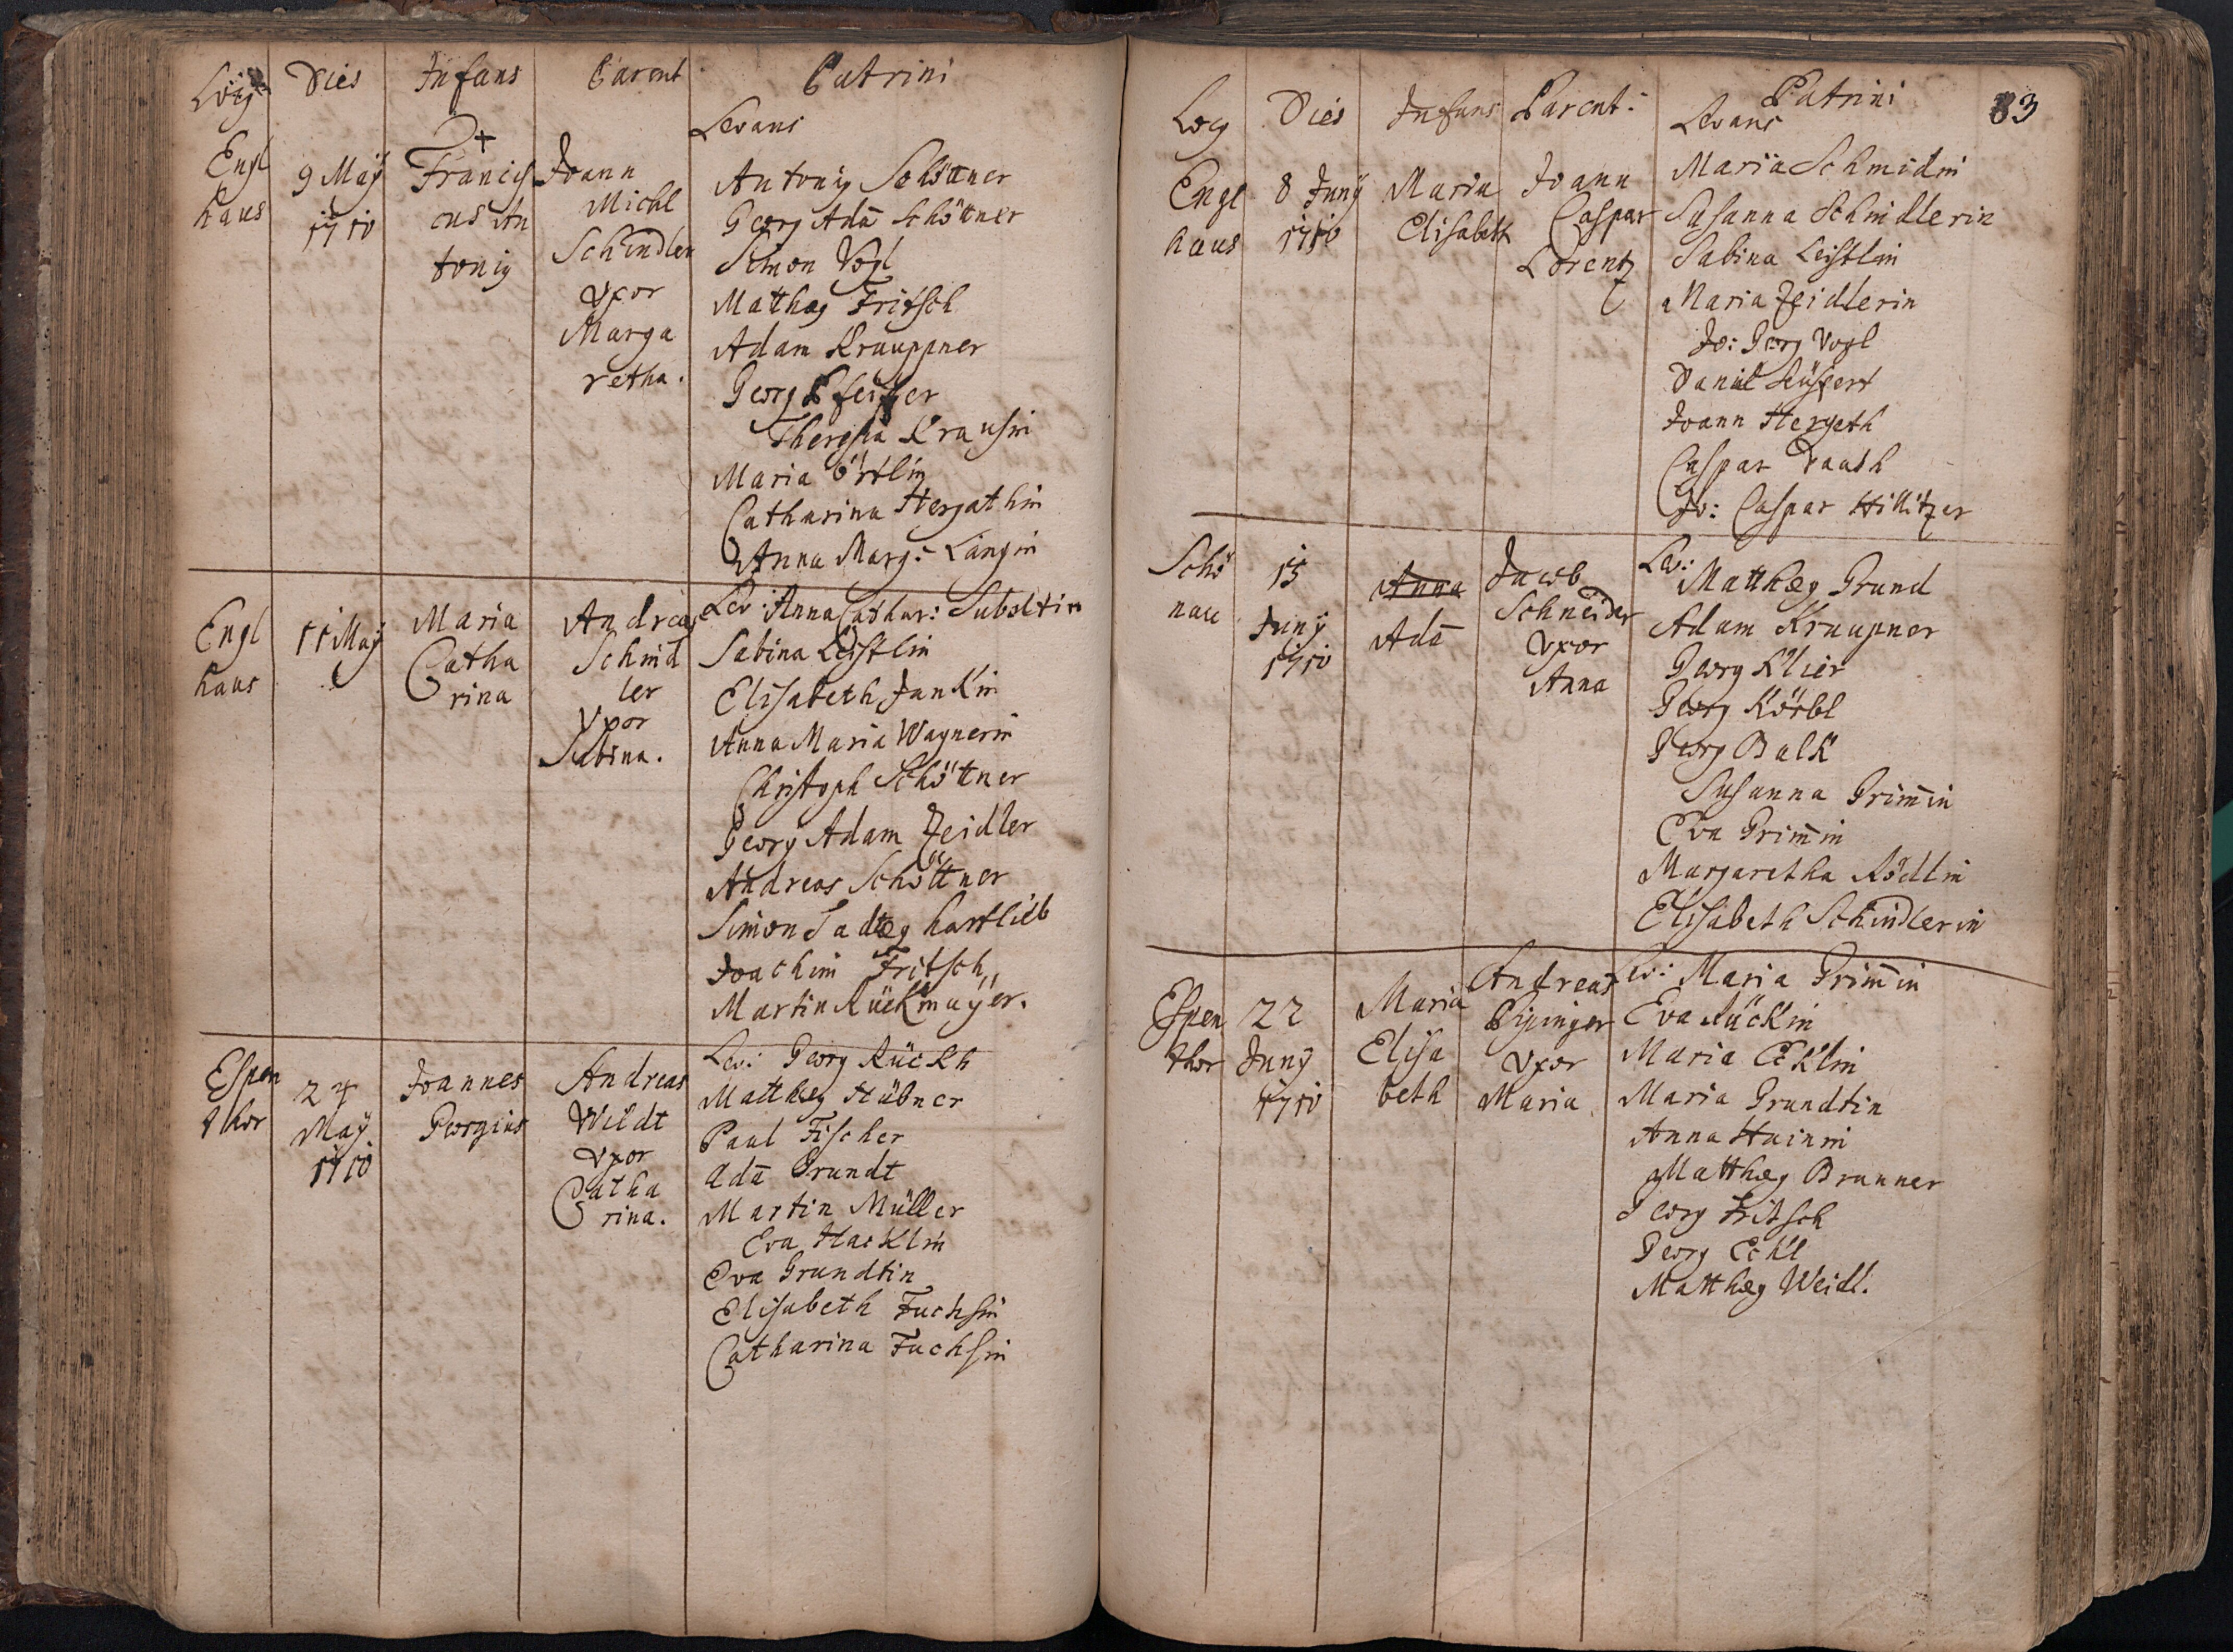 Locus Dies Infans Parent. Patrini
Levans
Engl
haus
9 Maÿ
1710
+
Francis
cus An
tonius
Joann
Michl
Schindler
Vxor
Marga
retha.
Antonius Schöttner
Georg Adā Schöttner
Simon Vogl
Mathæus Fritsch
Adam Krauppner
Georg Pfeiffer
Theresia Krausin
Maria Örtlin
Catharina Hergathin
Anna Marg: Langin
Engl
haus
11 Maÿ
Maria
Catha
rina
Andreas
Schind
ler
Vxor
Sabina.
Lev: Anna Cathar:
Sabina Leistlin
Elisabeth Junkin
Anna Maria Wagnerin
Christoph Schöttner
Georg Adam Zeidler
Andreas Schöttner
Simon Tadæus hartlieb
Joachim Fritsch
Martin Rückmaÿer.
Espen
thor
24
Maÿ
1710
Joannes
Georgius
Andreas
Wildt
Vxor
Catha
rina.
Lev: Georg Rückh
Matthæus Hübner
Paul Fischer
Adā Grundt
Martin Müller
Eva Hacklin
Eva Grundtin
Elisabeth Fuchsin
Catharina Fuchsin
Locus Dies Infans Parent: Patrini 83
Levans
Engl
haus
8 Junÿ
1710
Maria
Elisabeth
Joann
Caspar
Lorentz
Maria Schmidin
Susanna Schindlerin
Sabina Leistlin
Maria Zeidlerin
Jo: Georg Vogl
Daniel
Joann Hergeth
Caspar
Jo: Caspar Hillitzer
Schö
nau
15
Junÿ
1710
Anna
Adā
Jacob
Schneider
Vxor
Anna
Lev:
Matthæus Grund
Adam Kraupner
Georg Klier
Georg Körbl
Georg Balk
Susanna Grim̄in
Eva Grim̄in
Margaretha Rödlin
Elisabeth Schindlerin
Espen
thor
22
Junÿ
1710
Maria
Elisa
beth
Andreas
Vxor
Maria
Lev: Maria Grim̄in
Eva Rückin
Maria Ecklin
Maria Grundtin
Anna Hainin
Matthæus Brunner
Georg Fritsch
Georg Eckl
Matthæus Weidl.